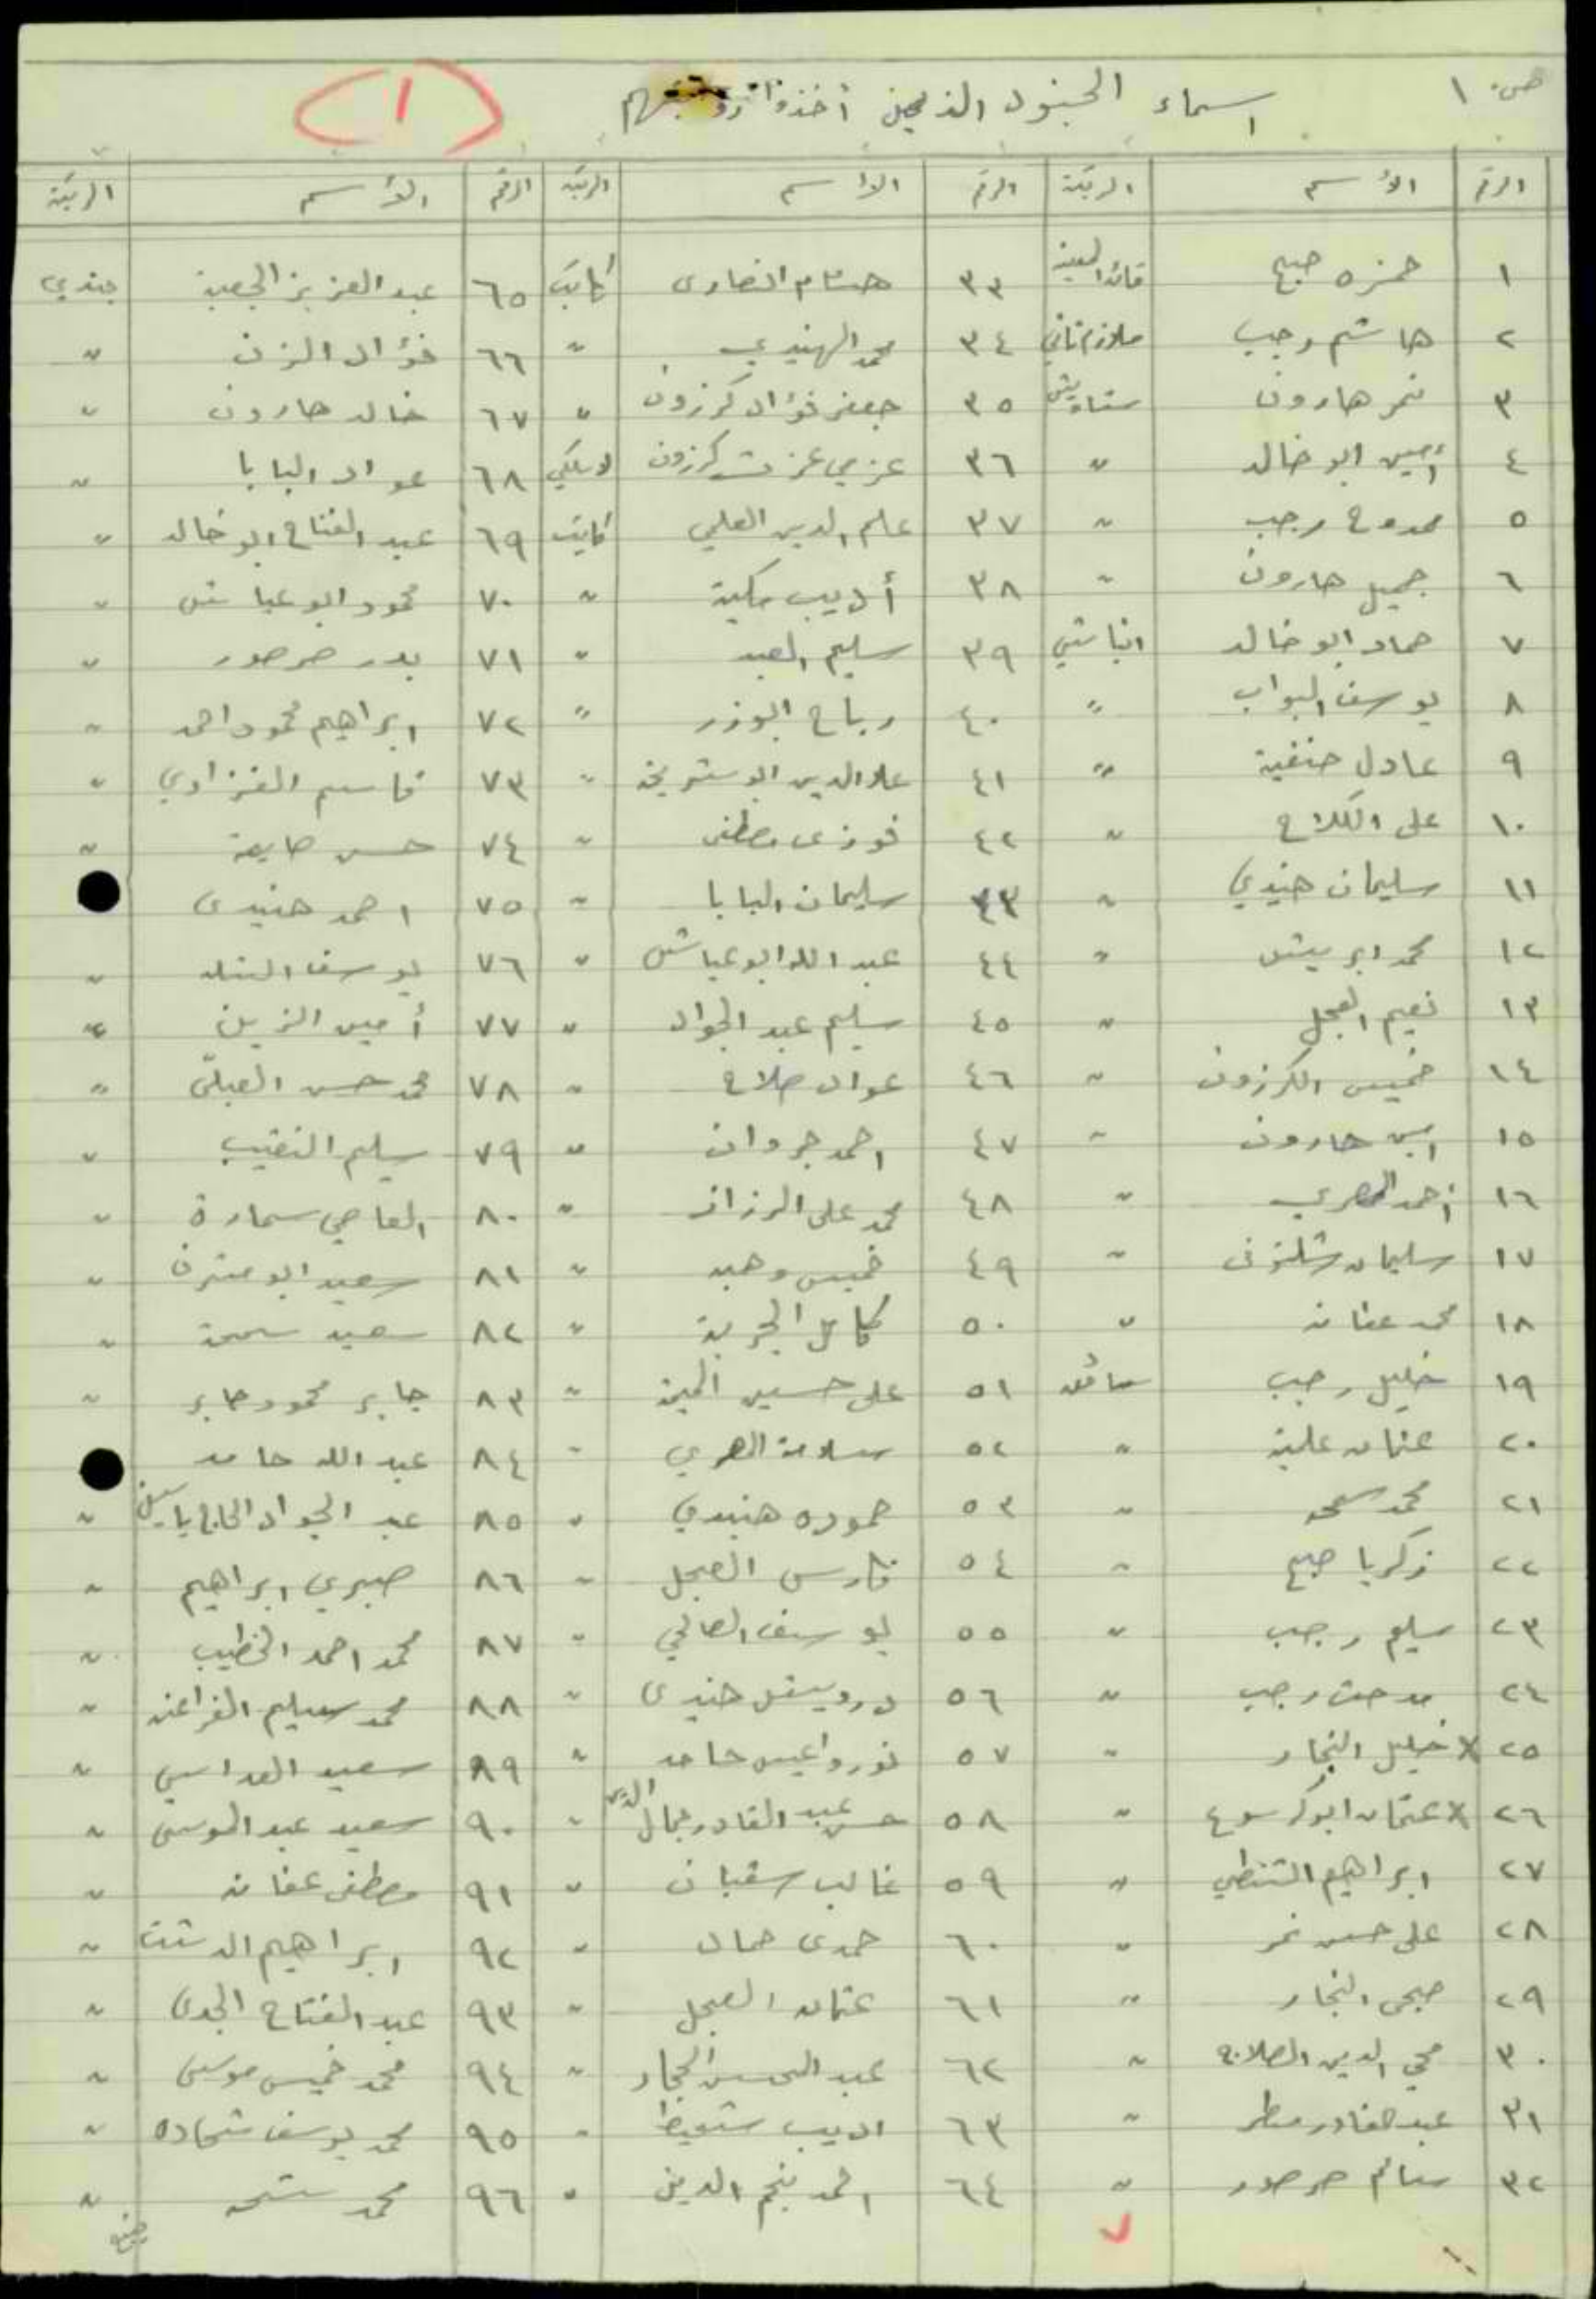 ص. ١
اسماء الجنود الذين أخذوا رواتبهم
١
الرقم الأسم الرتبة الرقم الاسم الرتبة الرقم الأسم الرتبة
١ حمزه صبح قائد السرية ٣٣ هشام النصاوى كاتب ٦٥ عبد العزيز الجعبة جندي
٢ هاشم رجب ملازم ثاني ٣٤ محمد الهنيدي " ٦٦ فؤاد الزن "
٣ نمر هارون شاويش ٣٥ جعفر فؤاد كرزون " ٦٧ خالد هارون "
٤ أمين ابو خالد " ٣٦ عزمي عزت كرزون لاسلكي ٦٨ عواد البابا "
٥ ممدوح رجب " ٣٧ علم الدين العلمي كاتب ٦٩ عبد الفتاح ابو خالد "
٦ جميل هارون " ٣٨ أديب مكية " ٧٠ محمود ابو عياش "
٧ حماد ابو خالد انباشي ٣٩ سليم العبد " ٧١ بدر صرصور "
٨ يوسف البواب " ٤٠ رباح ابو زر " ٧٢ ابراهيم محمود احمد "
٩ عادل حنفية " ٤١ علا الدين ابو شريخ " ٧٣ قاسم الغزاوي "
١٠ على الكلاح " ٤٢ فوزى مصطفى " ٧٤ حسن صايمة "
١١ سليمان هنيدي " ٤٣ سليمان البابا " ٧٥ احمد هنيدى
١٢ محمد ابريش " ٤٤ عبد الله ابو عياش " ٧٦ يوسف الشله "
١٣ نعيم العجل " ٤٥ سليم عبد الجواد " ٧٧ أمين الزين "
١٤ خميس الكرزون " ٤٦ عواد صلاح " ٧٨ محمد حسن العبلى "
١٥ امين هارون " ٤٧ احمد جروان " ٧٩ سليم النقيب "
١٦ أحمد المصري " ٤٨ محمد على الرزاز " ٨٠ العاصي سمارة "
١٧ سليمان شلتونى " ٤٩ خميس وهبه " ٨١ سعيد ابو مشرف "
١٨ محمد عفانه " ٥٠ كامل الجربة " ٨٢ سعيد سمحة "
١٩ خليل رجب سائق ٥١ على حسين " ٨٣ جابر محمود جابر "
٢٠ عثمان علية " ٥٢ سلامة المصري " ٨٤ عبد الله حامد
٢١ محمد سمحه " ٥٣ حموده هنيدي " ٨٥ عبد الجواد الحاج ياسين "
٢٢ زكريا صبح " ٥٤ فارس العجل " ٨٦ صبري ابراهيم "
٢٣ سليم رجب " ٥٥ يوسف الصالحي " ٨٧ محمد احمد الخطيب "
٢٤ مدحت رجب " ٥٦ درويش هنيدى " ٨٨ محمد سليم الفراعنه "
٢٥ x خليل النجار " ٥٧ نورو اعيس حامد " ٨٩ سعيد العداسي "
٢٦ x عثمان ابو كرسوع " ٥٨ حسن عبد القادر جمال الدين " ٩٠ سعيد عبد الموسى "
٢٧ ابراهيم الشنطي " ٥٩ غالب سقبان " ٩١ مصطفى عفانه "
٢٨ على حسن نمر " ٦٠ حمدى حماد " ٩٢ ابراهيم الدشت "
٢٩ صبحى النجار " ٦١ عثمان العجل " ٩٣ عبد الفتاح الجدى "
٣٠ محي الدين الصلاج " ٦٢ عبد المحسن الحجار " ٩٤ محمد خميس موسى "
٣١ عبد القادر مطر " ٦٣ اديب شعيط " ٩٥ محمد يوسف شحاده "
٣٢ سالم صرصور " ٦٤ احمد نجم الدين " ٩٦ محمد سمحه "